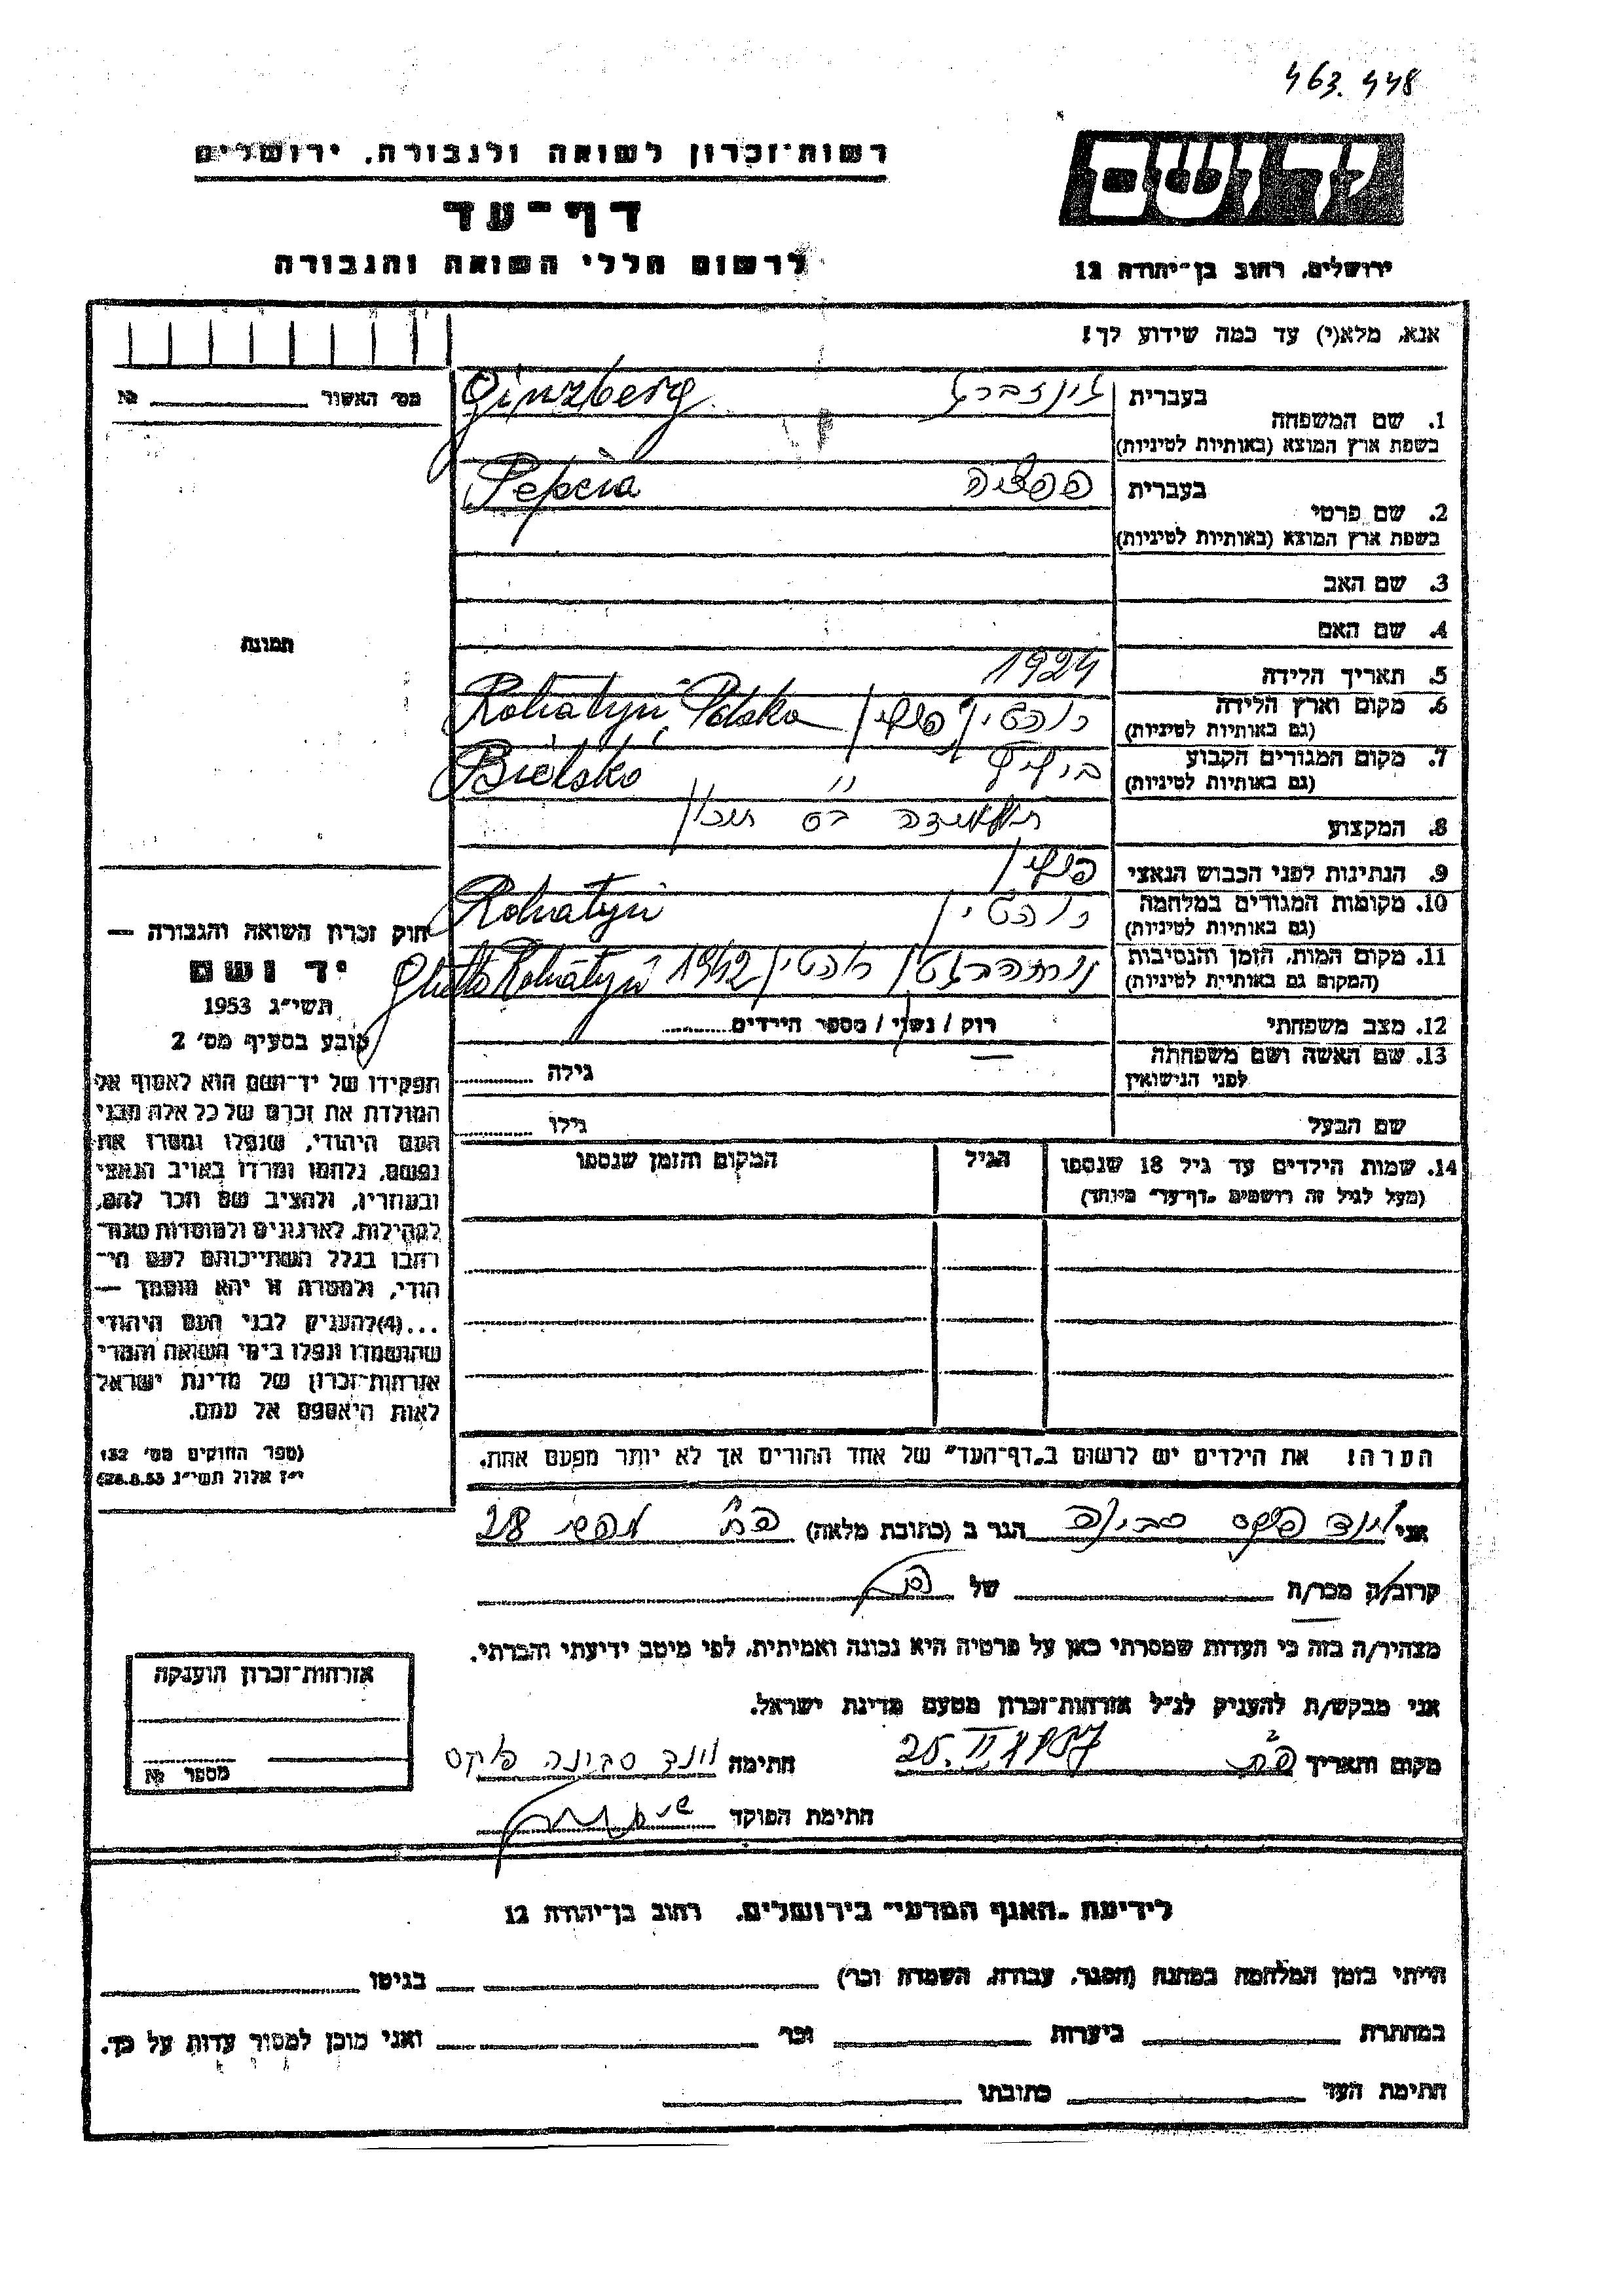 463.448
רשות־זכרון לשואה ולגבורה, ירושלים
יד ושם
דף־עד
לרשום חללי השואה והגבורה
ירושלים, רחוב בן־יהודה 12
אנא, מלא(י) עד כמה שידוע לך!
מס׳ האשור № 
1. שם המשפחה
בעברית גינזברג
בשפת ארץ המוצא (באותיות לטיניות) Ginzberg
2. שם פרטי
בעברית פפציה
בשפת ארץ המוצא (באותיות לטיניות) Pepcia
3. שם האב
4. שם האם
5. תאריך הלידה 1924
6. מקום וארץ הלידה (גם באותיות לטיניות) רוהטין פולין Rohatyn Polska
7. מקום המגורים הקבוע (גם באותיות לטיניות) Bielsko
8. המקצוע תלמידה
9. הנתינות לפני הכבוש הנאצי פולין
10. מקומות המגורים במלחמה (גם באותיות לטיניות) רוהטין Rohatyn
11. מקום המות, הזמן והנסיבות (המקום גם באותיות לטיניות) רוהטין 1942 Ghetto Rohatyn
12. מצב משפחתי רווק / נשוי / מספר הילדים
13. שם האשה ושם משפחתה לפני הנישואין גילה
שם הבעל גילו
14. שמות הילדים עד גיל 18 שנספו
(מעל לגיל זה רושמים „דף־עד” מיוחד)
הגיל
המקום והזמן שנספו
תמונה
חוק זכרון השואה והגבורה —
יד ושם
תשי״ג 1953
קובע בסעיף מס׳ 2
תפקידו של יד־ושם הוא לאסוף אל
המולדת את זכרם של כל אלה מבני
העם היהודי, שנפלו ומסרו את
נפשם, נלחמו ומרדו באויב הנאצי
ובעוזריו, ולהציב שם וזכר להם,
לקהילות, לארגונים ולמוסדות שנח־
רבו בגלל השתייכותם לעם הי־
הודי, ולמטרה זו יהא מוסמך —
...(4)להעניק לבני העם היהודי
שהושמדו ונפלו בימי השואה והמרי
אזרחות־זכרון של מדינת ישראל
לאות היאספם אל עמם.
(ספר החוקים מס׳ 132
י״ז אלול תשי״ג 28.8.53)
הערה! את הילדים יש לרשום ב„דף־העד” של אחד ההורים אך לא יותר מפעם אחת.
אני סבינה הגר ב (כתובת מלאה) 28
קרוב/ה מכר/ה של
מצהיר/ה בזה כי העדות שמסרתי כאן על פרטיה היא נכונה ואמיתית, לפי מיטב ידיעתי והכרתי.
אני מבקש/ת להעניק לנ״ל אזרחות־זכרון מטעם מדינת ישראל.
מקום ותאריך 25.II 1957 חתימה
חתימת הפוקד
אזרחות־זכרון הוענקה
מספר №
לידיעת „האגף המדעי” בירושלים, רחוב בן־יהודה 12
הייתי בזמן המלחמה במחנה (הסגר, עבודה, השמדה וכו׳) בגיטו
במחתרת ביערות וכו׳ ואני מוכן למסור עדות על כך.
חתימת העד כתובתו